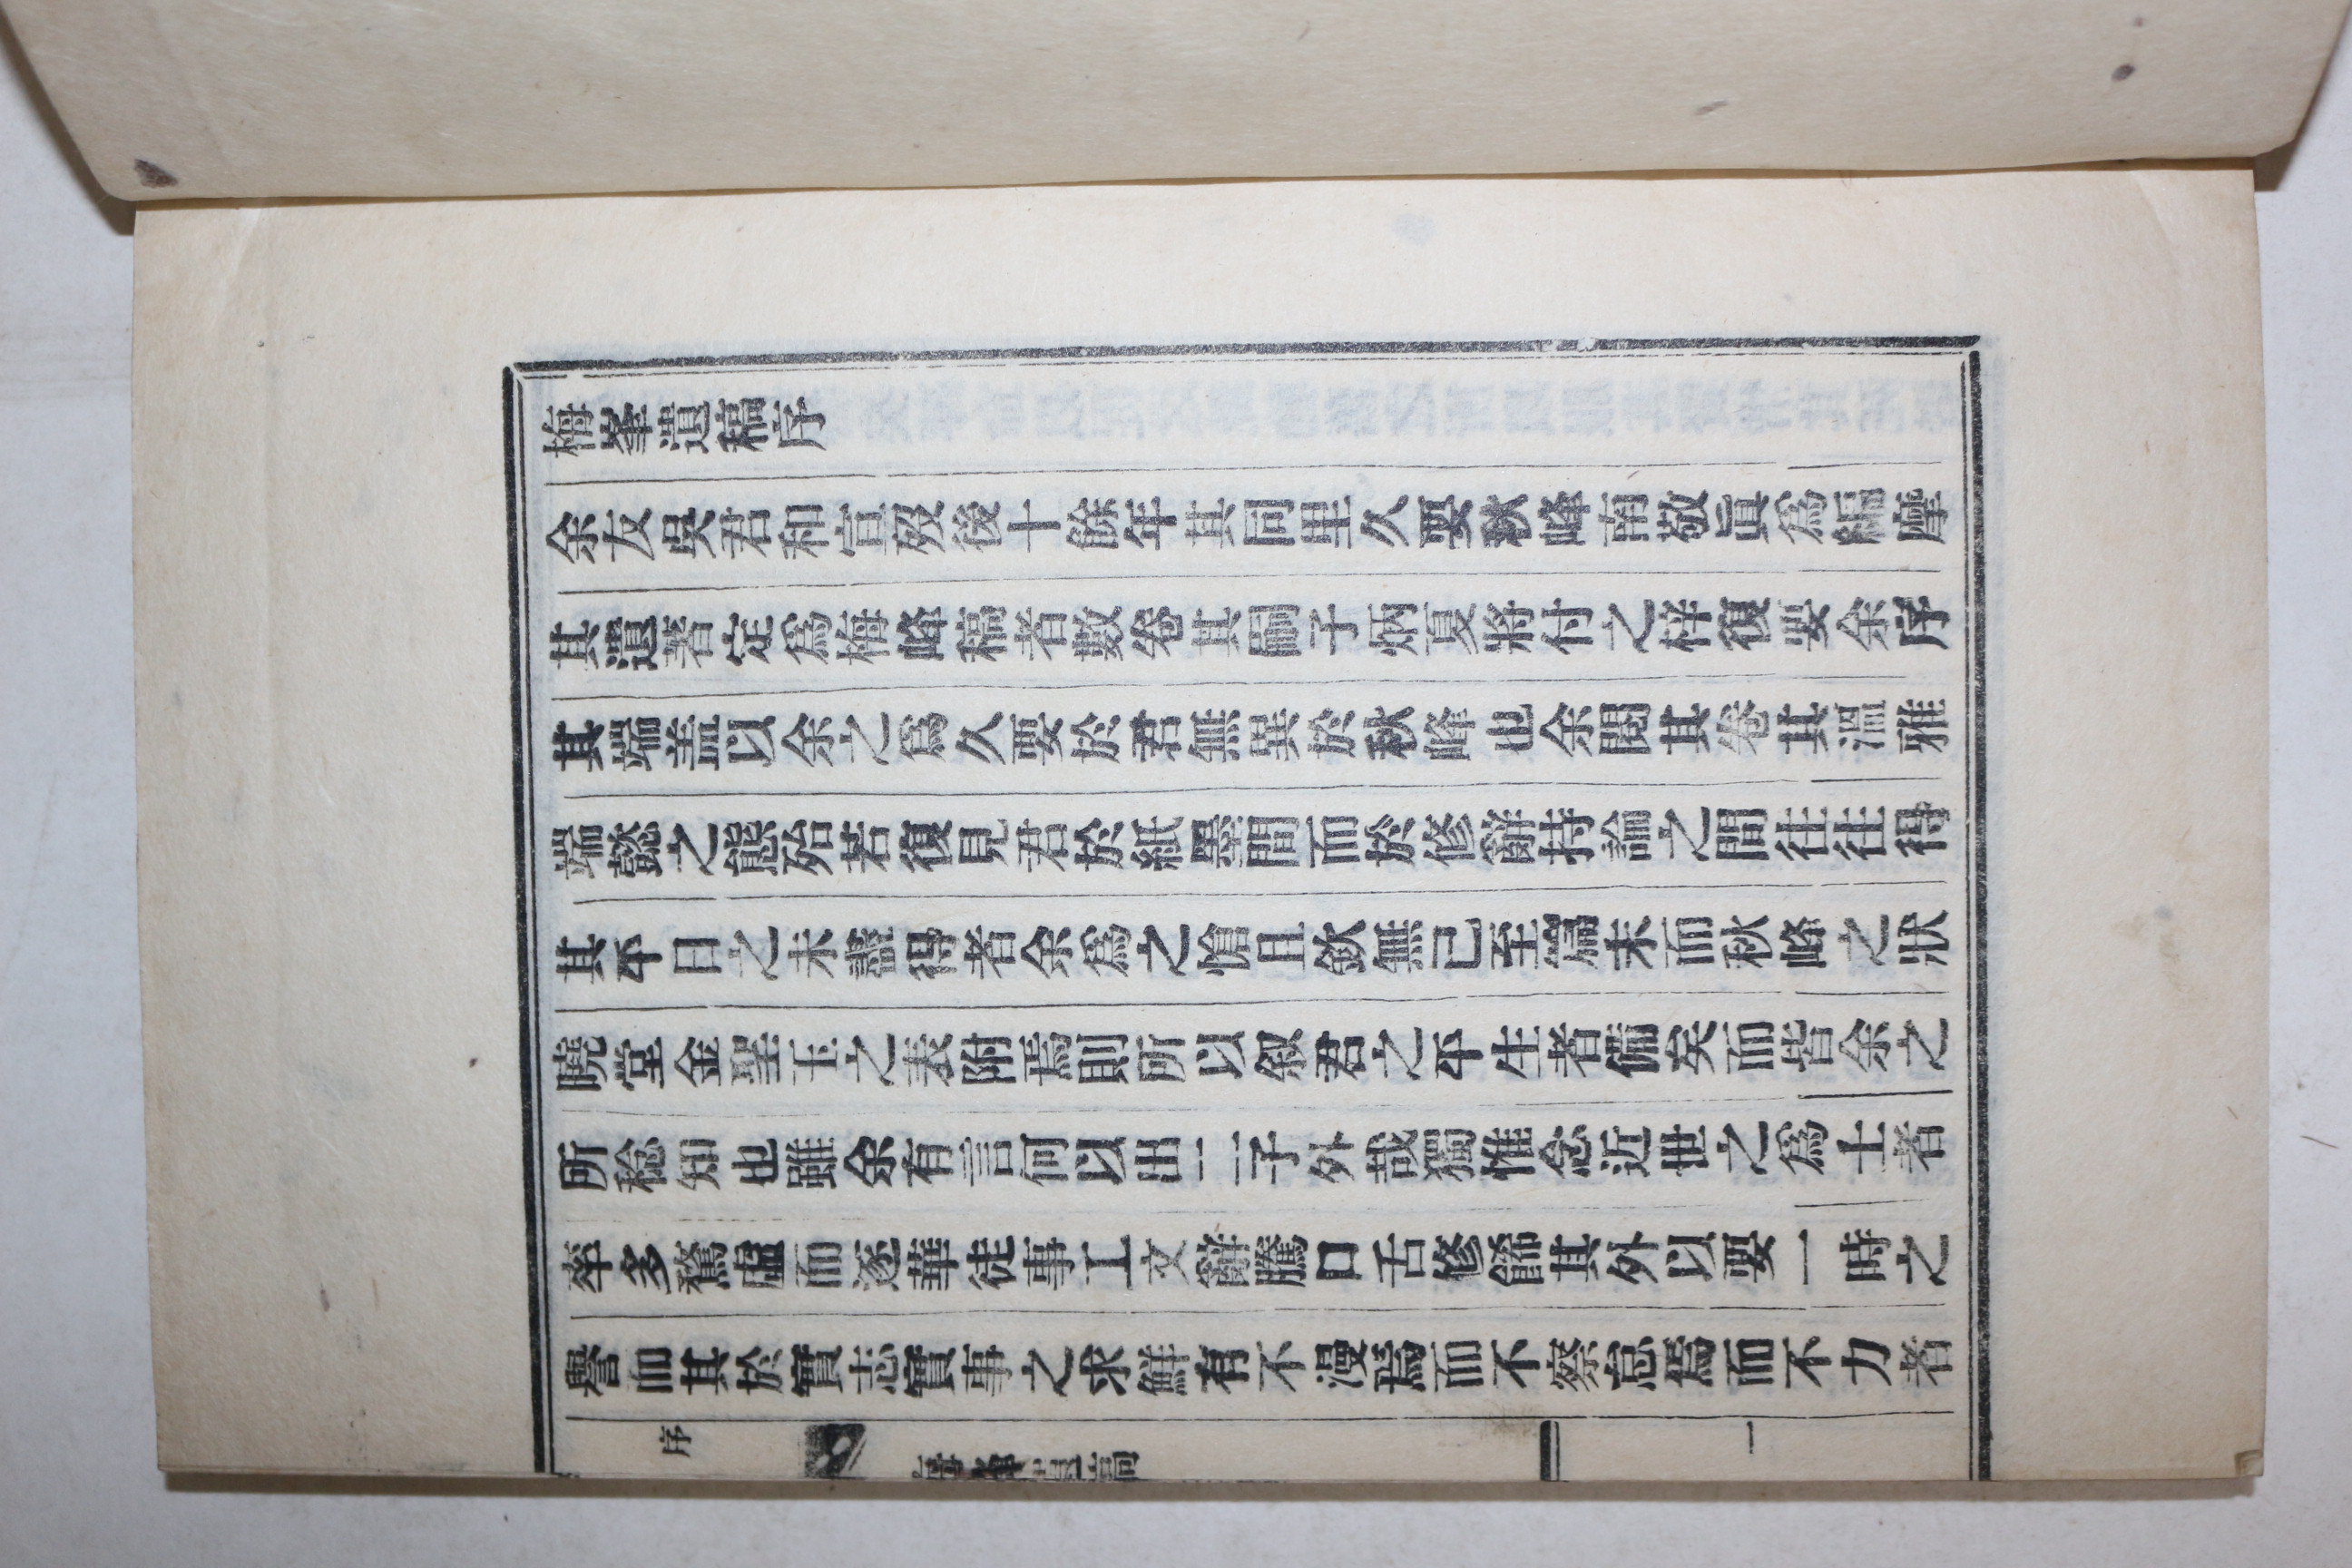 梅峯遺稿序
余友吳君和宣歿後十餘年其同里久要秋峰南敬眞爲編摩
其遺著定爲梅峰稿者數卷其嗣子炳夏將付之梓復要余序
其端盖以余之爲久要於君無異於秋峰也余閱其卷其溫雅
端懿之態殆若復見君於紙墨間而於修辭持論之間往往得
其平日之未盡得者余爲之愴且欽無已至篇末而秋峰之狀
曉堂金聖玉之表附焉則所以叙君之平生者備矣而皆余之
所稔知也雖余有言何以出二子外哉獨惟念近世之爲士者
率多騖虛而逐華徒事工文辭騰口舌修餙其外以要一時之
譽而其於實志實事之求鮮有不漫焉而不察怠焉而不力者
序
梅峯遺稿
一